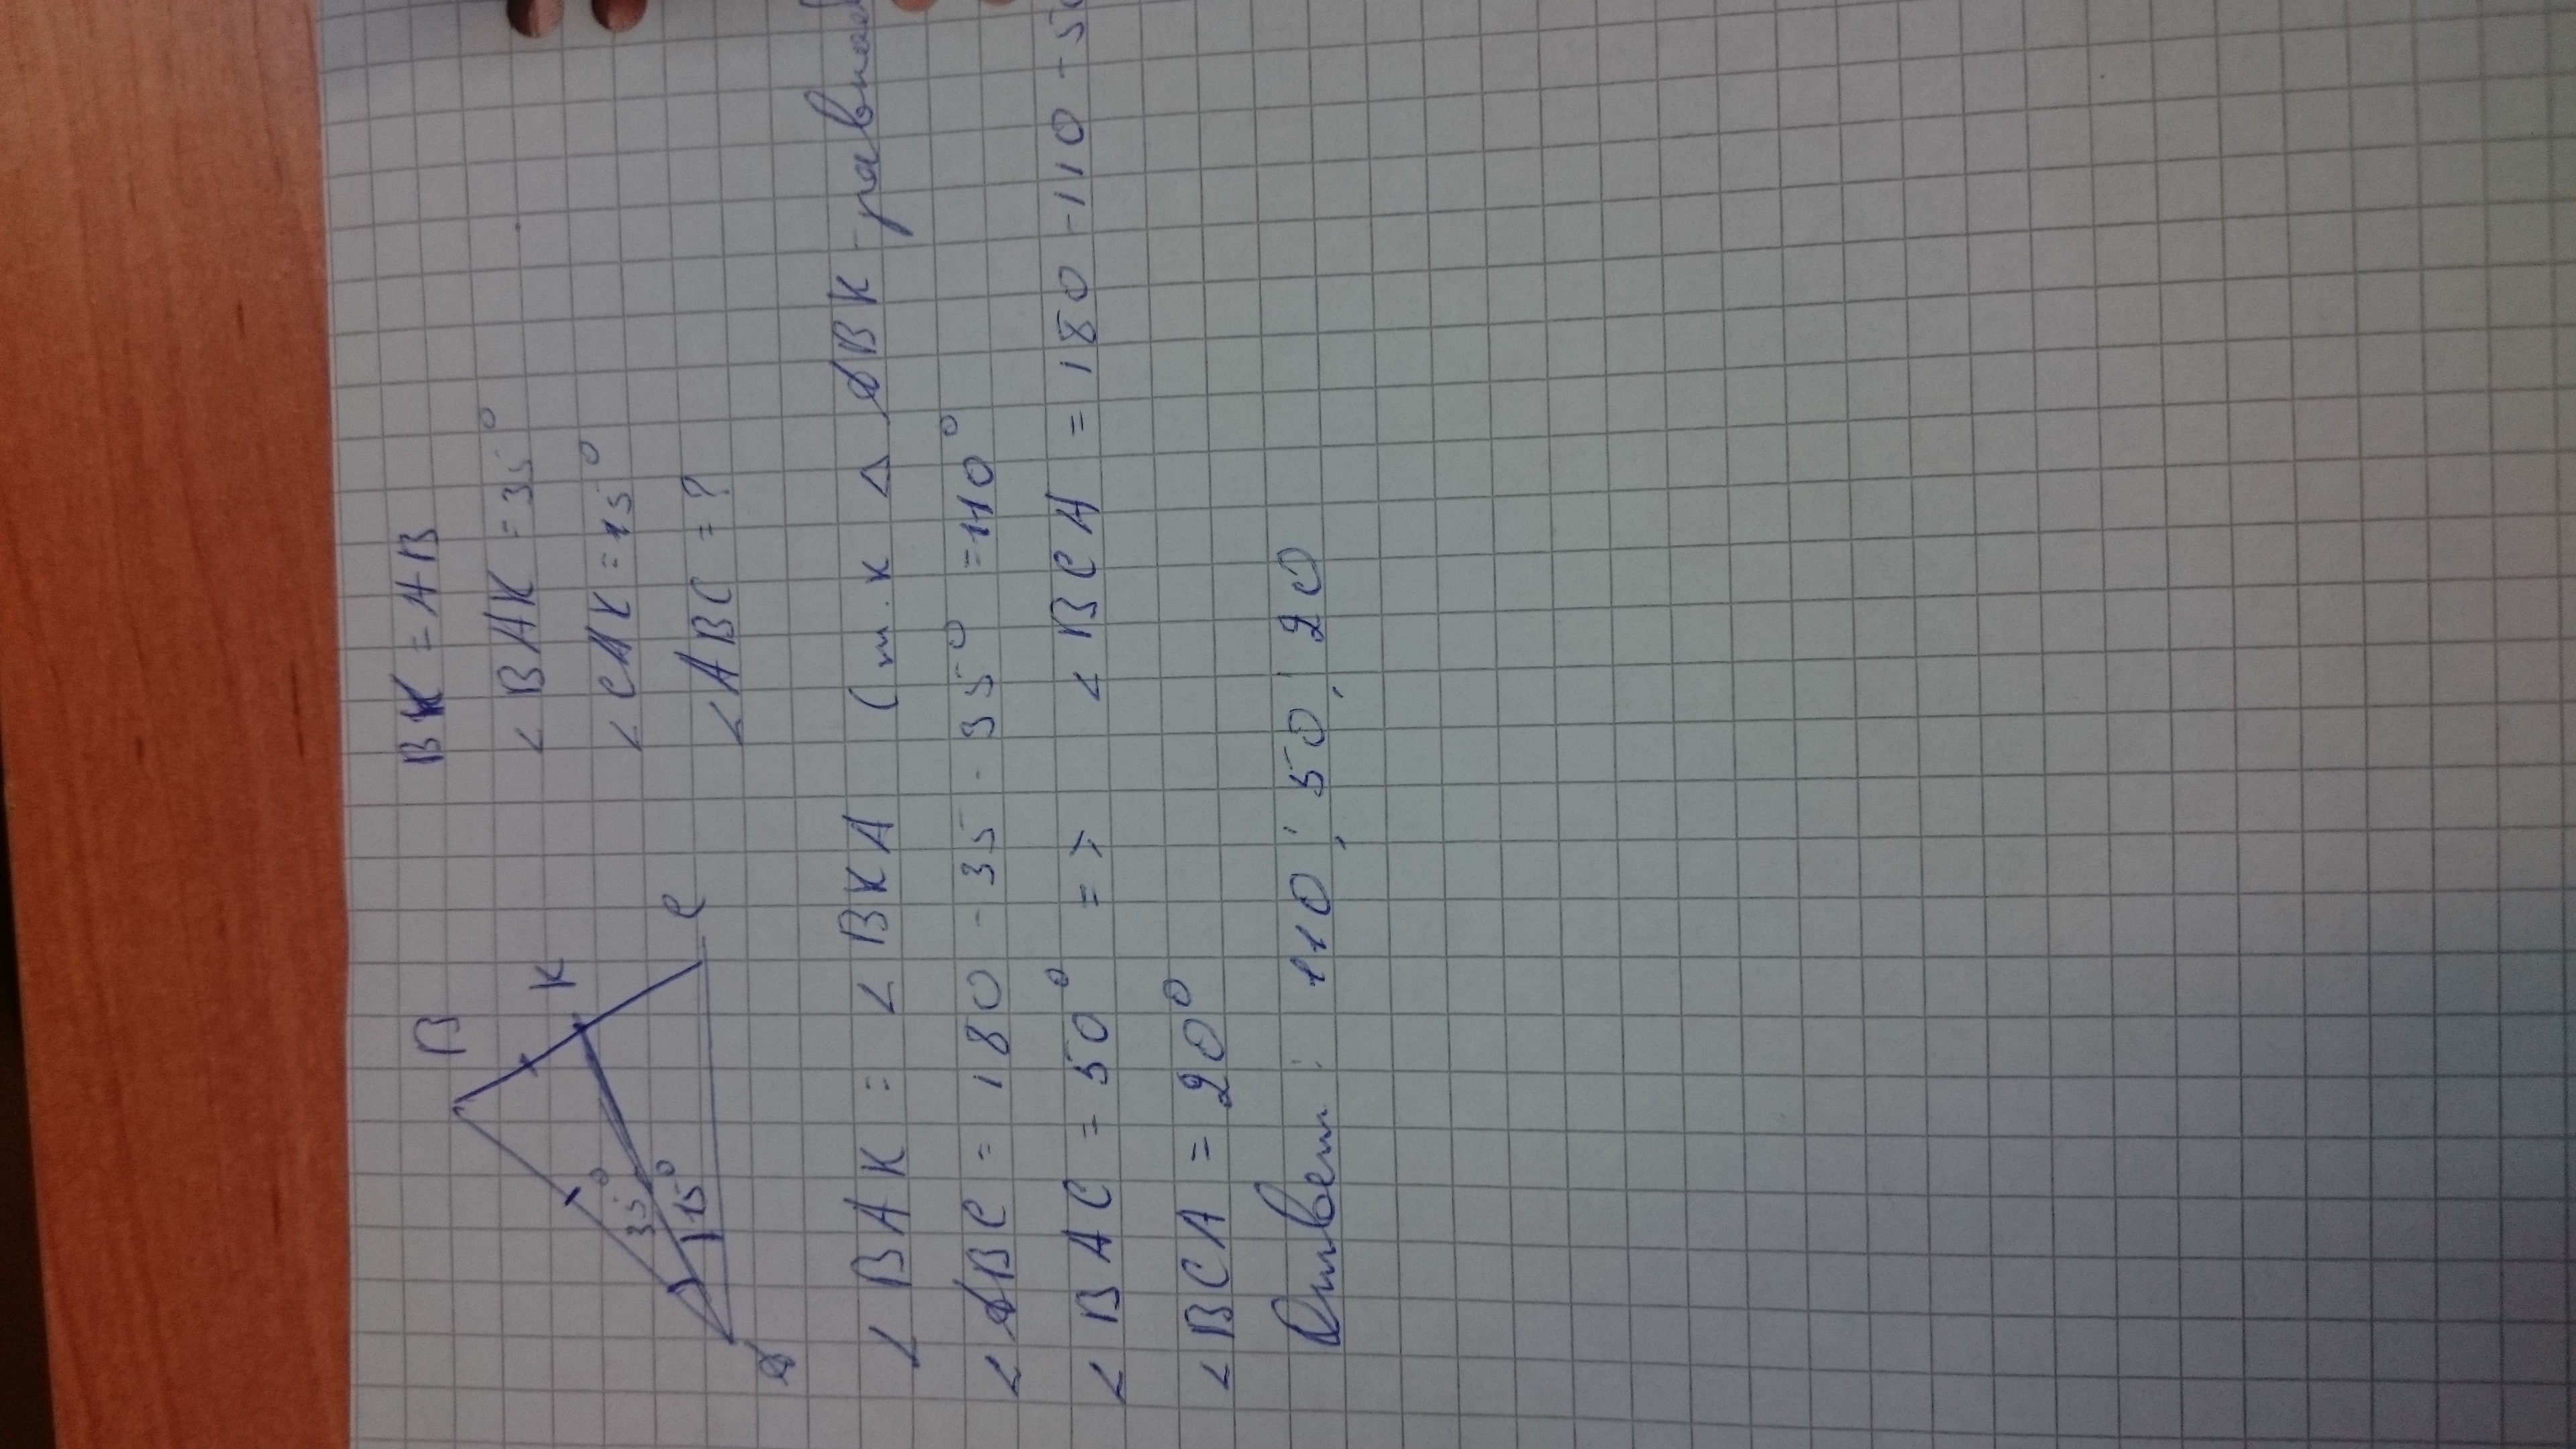 BK = AB
∠ BAK = 35°
∠ CAK = 15°
∠ ABC = ?
B
K
C
A
35°
15°
∠ BAK = ∠ BKA (т.к Δ ABK -
∠ ABC = 180 - 35 - 35° = 110°
∠ BAC = 50° => ∠ BCA = 180 - 110 - 50
∠ BCA = 20°
Ответ: 110; 50; 20